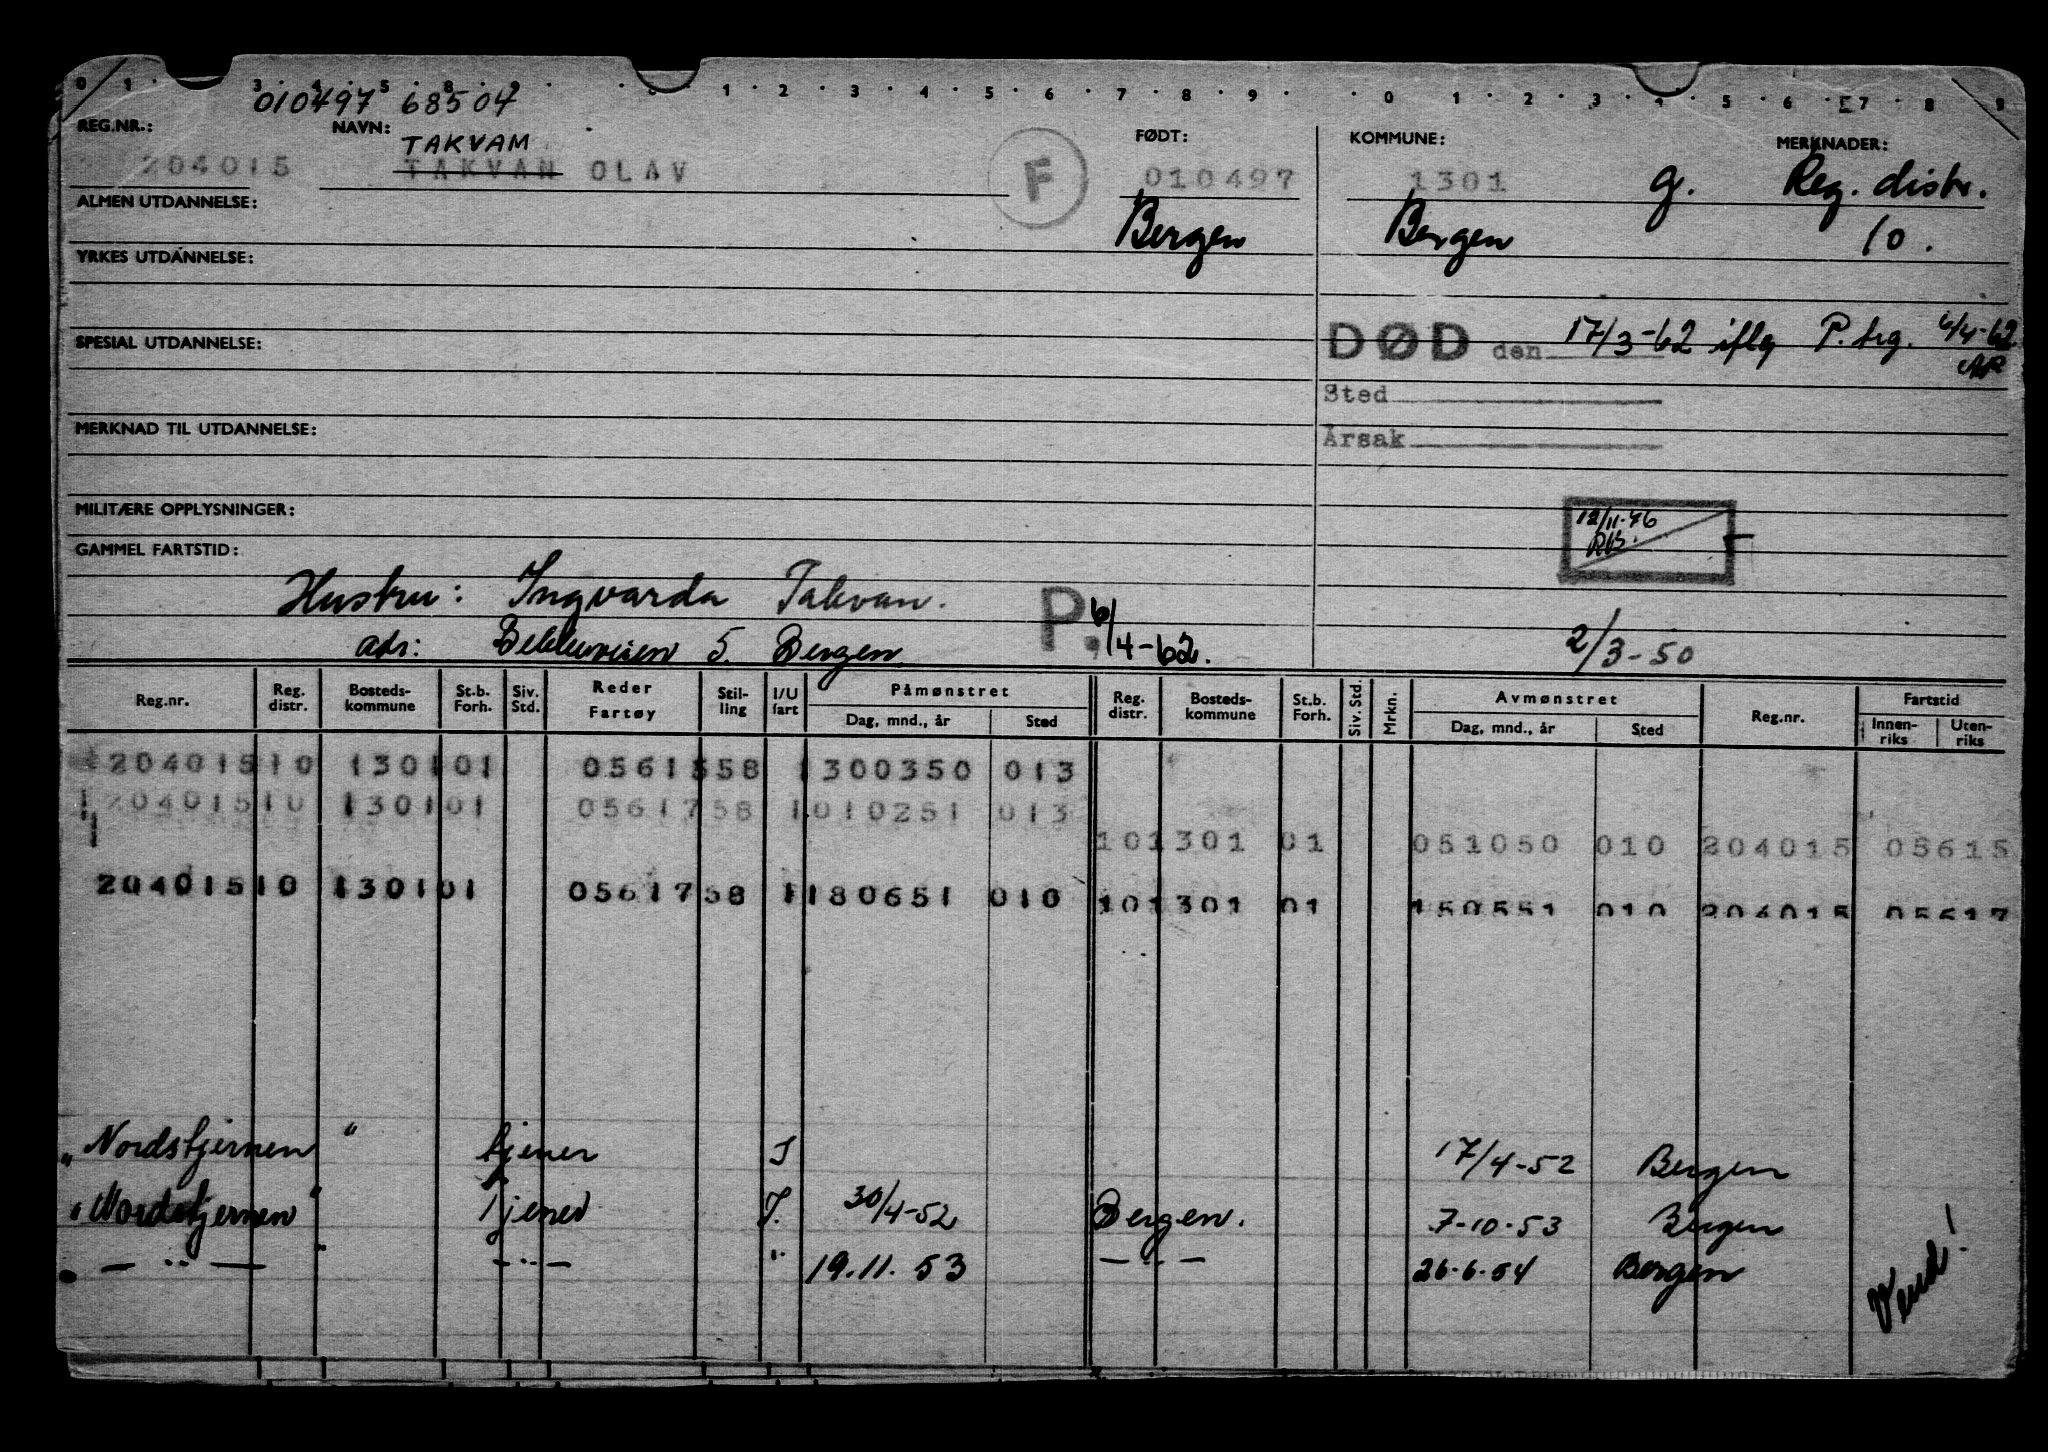 0 1 3 4 5 8 9 1 2 3 4 5 6 7 8 9 0 1 2 3 4 5 6 7 8 9
010497 68504
REG.NR.: NAVN: FØDT: KOMMUNE: MERKNADER:
TAKVAM
204015 TAKVAN OLAV F 010497 1301 g. Reg. distr.
ALMEN UTDANNELSE:
Bergen Bergen 10.
YRKES UTDANNELSE:
SPESIAL UTDANNELSE: DØD den 17/3-62 iflg P. trg. 6/4-62
Sted
MERKNAD TIL UTDANNELSE: Årsak
MILITÆRE OPPLYSNINGER: 12/11-46
GAMMEL FARTSTID:
Hustru: Ingvarda Takvan. P. 6/4-62.
adr: 5. Bergen 2/3-50
Reg.nr. Reg. distr. Bosteds-kommune St.b. Forh. Siv. Std. Reder Fartøy Stil-ling I/U fart Påmønstret Dag, mnd., år Sted Reg. distr. Bosteds-kommune St.b. Forh. Siv. Std. Mrkn. Avmønstret Dag, mnd., år Sted Reg.nr. Fartstid Innen-riks Uten-riks
204015 10 1301 01 0561558 1 300350 013
204015 10 1301 01 0561758 1 010251 013
10 1301 01 051050 010 204015 05615
204015 10 1301 01 0561758 1 180651 010
10 1301 01 150551 010 204015 05617
„Nordstjernen" tjener I 17/4-52 Bergen
„Nordstjernen" Tjener I. 30/4-52 Bergen. 7-10-53 Bergen
— " — — " — " 19.11.53 — " — 26-6-54 Bergen
Vend!